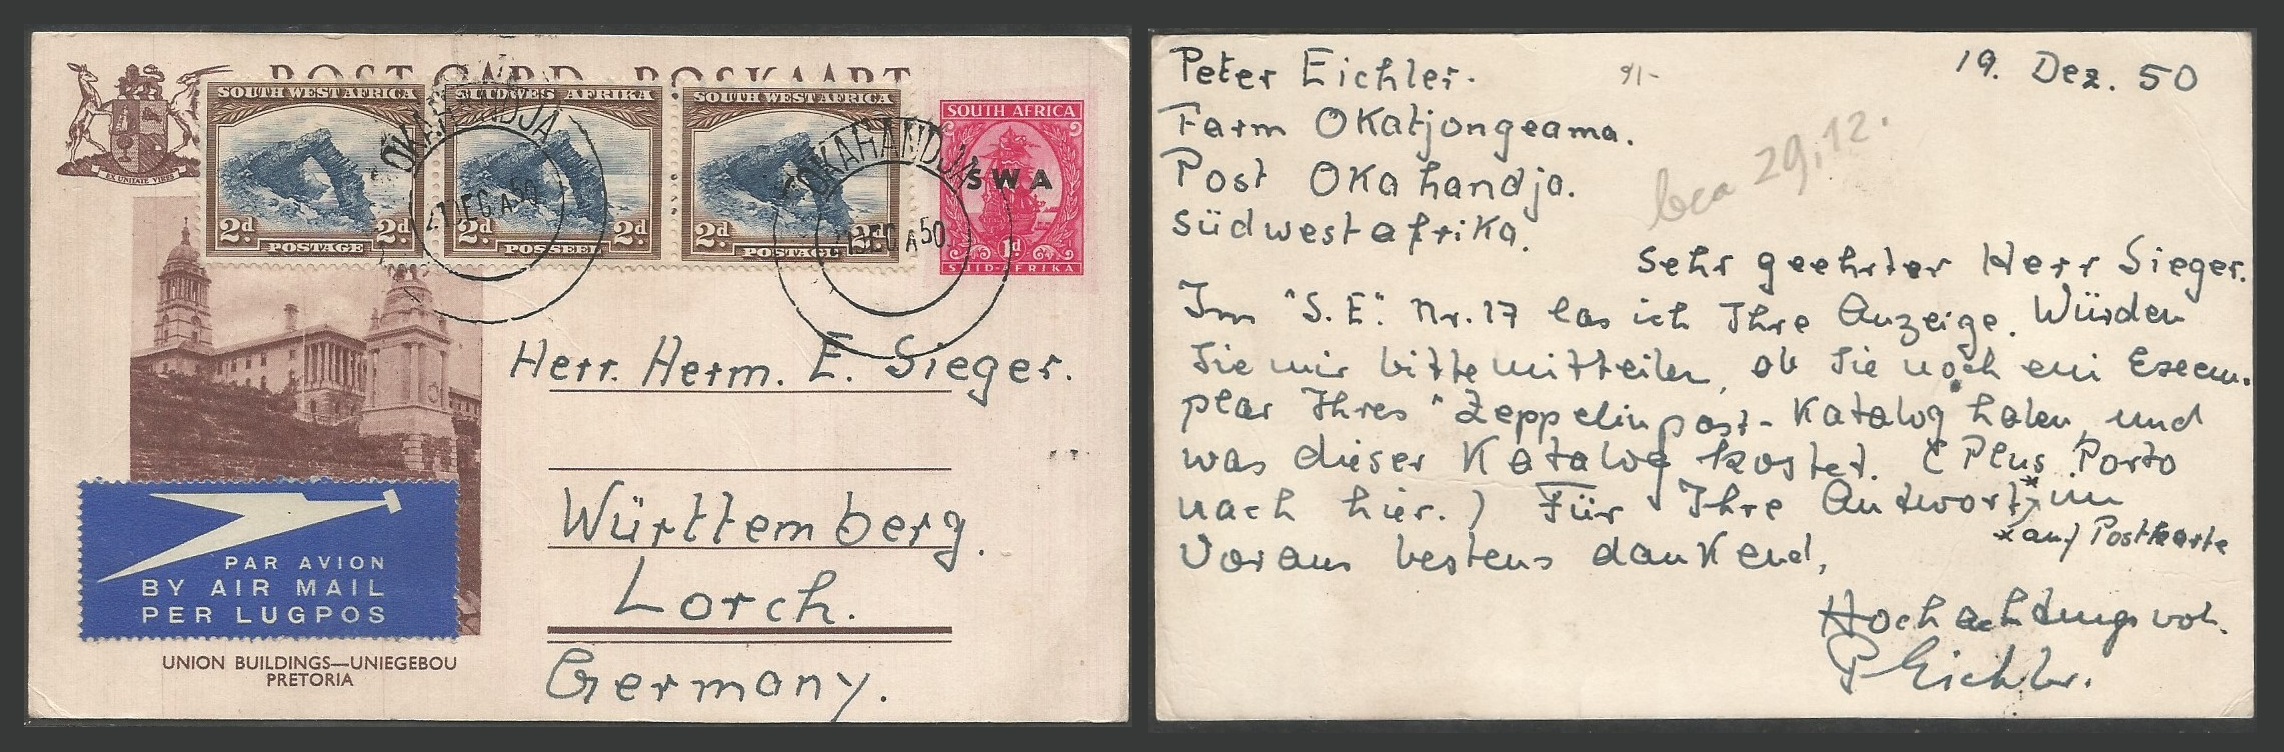 POST CARD POSKAART
EX UNITATE VIRES
SOUTH WEST AFRICA
2d 2d.
POSTAGE
SUIDWES AFRIKA
2d 2d.
POSSEEL
SOUTH WEST AFRICA
2d 2d.
POSTAGE
SOUTH AFRICA
SWA
1d
SUID-AFRIKA
OKAHANDJA
DEC A 50
OKAHANDJA
DEC A 50
Herr. Herm. E. Sieger.
Württemberg.
Lorch.
Germany.
PAR AVION
BY AIR MAIL
PER LUGPOS
UNION BUILDINGS—UNIEGEBOU
PRETORIA
Peter Eichler.
19. Dez. 50
Farm Okatjongeama.
Post Okahandja.
Südwestafrika.
29.12.
Sehr geehrter Herr Sieger.
Im "S.E." Nr. 17 las ich Ihre Anzeige. Würden
Sie mir bitte mitteilen, ob Sie noch ein Exem-
plar Ihres "Zeppelinpost-Katalog" haben und
was dieser Katalog kostet. (Plus Porto
nach hier.) Für Ihre Antwort* im
*auf Postkarte
Voraus bestens dankend,
Hochachtungsvoll.
P Eichler.